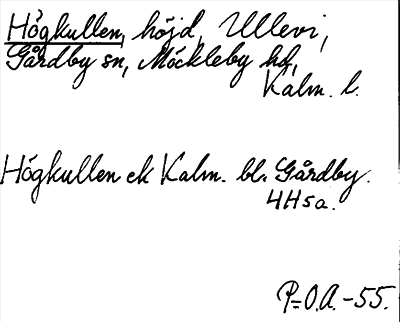 Högkullen, höjd, Ullevi,
Gårdby sn, Möckleby hd,
Kalm. l.
Högkullen ek Kalm. bl. Gårdby.
4H5a.
P=O.A.-55.